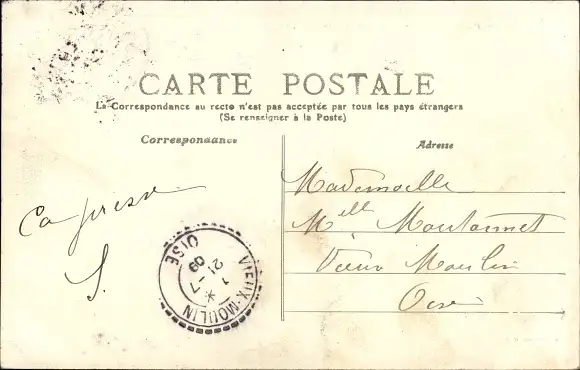 CARTE POSTALE
La Correspondance au recto n'est pas acceptée par tous les pays étrangers
(Se renseigner à la Poste)
Correspondance
Adresse
Ca presse
S.
Mademoiselle
Mlle Moutonnet
Vieux Moulin
Oise
VIEUX-MOULIN
OISE
21
09